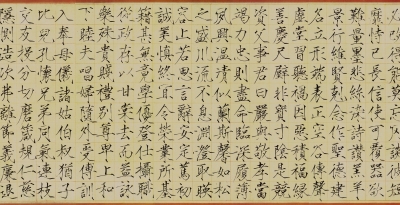 必改得能莫忘罔談彼短
靡恃己長信使可覆器欲
難量墨悲絲染詩讚羔羊
景行維賢克念作聖德建
名立形端表正空谷傳聲
虛堂習聽禍因惡積福緣
善慶尺璧非寶寸陰是競
資父事君曰嚴與敬孝當
竭力忠則盡命臨深履薄
夙興溫凊似蘭斯馨如松
之盛川流不息淵澄取映
容止若思言辭安定篤初
誠美慎終宜令榮業所基
籍甚無竟學優登仕攝職
從政存以甘棠去而益詠
樂殊貴賤禮別尊卑上和
下睦夫唱婦隨外受傅訓
入奉母儀諸姑伯叔猶子
比兒孔懷兄弟同氣連枝
交友投分切磨箴規仁慈
隱惻造次弗離節義廉退